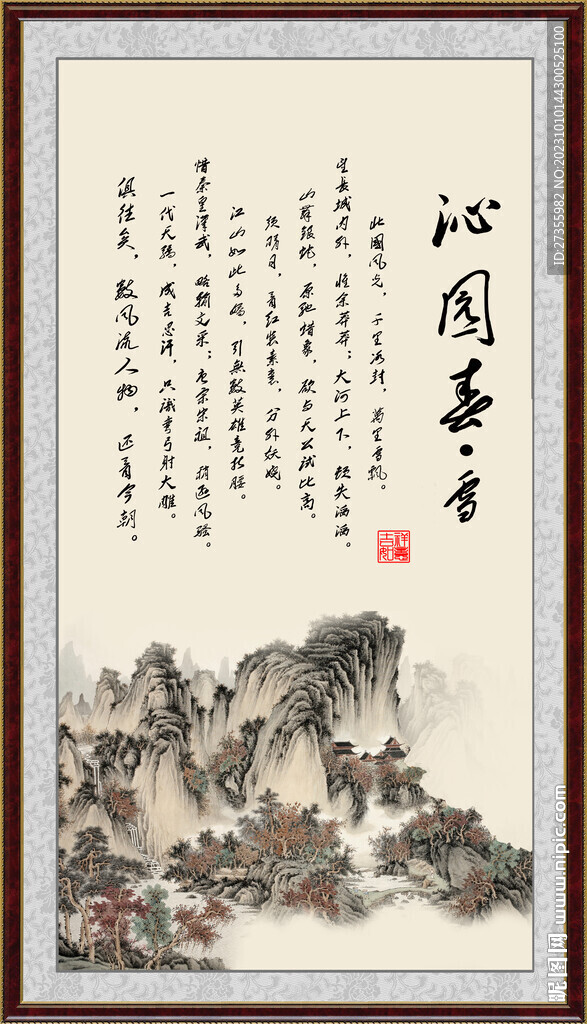 沁园春·雪
北國風光，千里冰封，萬里雪飄。
望長城内外，惟余莽莽；大河上下，頓失滔滔。
山舞銀蛇，原馳蜡象，欲与天公試比高。
須晴日，看紅裝素裹，分外妖嬈。
江山如此多嬌，引無數英雄竞折腰。
惜秦皇漢武，略輸文采；唐宗宋祖，稍遜風騷。
一代天驕，成吉思汗，只識彎弓射大雕。
俱往矣，數風流人物，还看今朝。
吉祥如意
ID:27355982 NO:20231010144300525100
昵图网 www.nipic.com